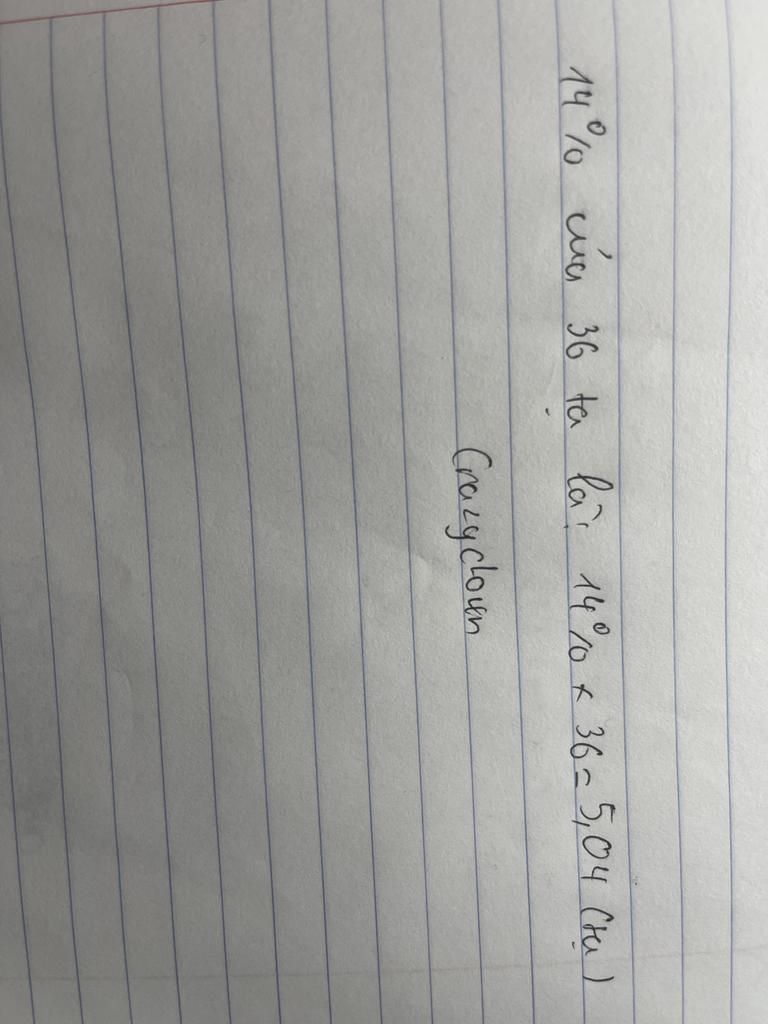 14% của 36 tạ là: 14% × 36 = 5,04 (tạ)
Crazyclown